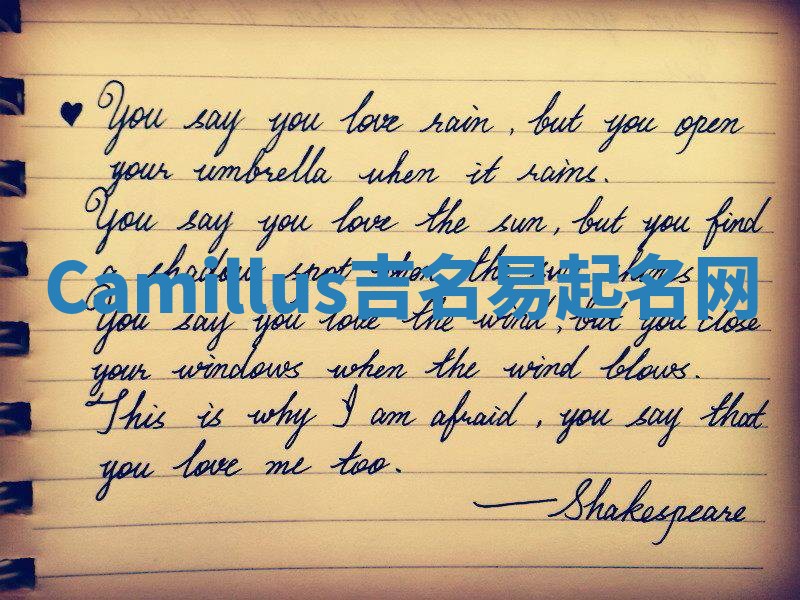 ♥ You say you love rain, but you open
your umbrella when it rains.
You say you love the sun, but you find
a shadow spot when the sun shines
Camillus吉名易起名网
You say you love the wind, but you close
your windows when the wind blows.
This is why I am afraid, you say that
you love me too.
—Shakespeare